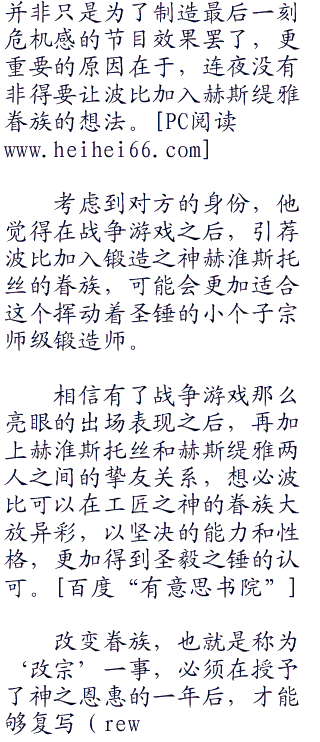 并非只是为了制造最后一刻
危机感的节目效果罢了，更
重要的原因在于，连夜没有
非得要让波比加入赫斯缇雅
眷族的想法。[PC阅读
www.heihei66.com]
考虑到对方的身份，他
觉得在战争游戏之后，引荐
波比加入锻造之神赫淮斯托
丝的眷族，可能会更加适合
这个挥动着圣锤的小个子宗
师级锻造师。
相信有了战争游戏那么
亮眼的出场表现之后，再加
上赫淮斯托丝和赫斯缇雅两
人之间的挚友关系，想必波
比可以在工匠之神的眷族大
放异彩，以坚决的能力和性
格，更加得到圣毅之锤的认
可。[百度“有意思书院”]
改变眷族，也就是称为
‘改宗’一事，必须在授予
了神之恩惠的一年后，才能
够复写（rew